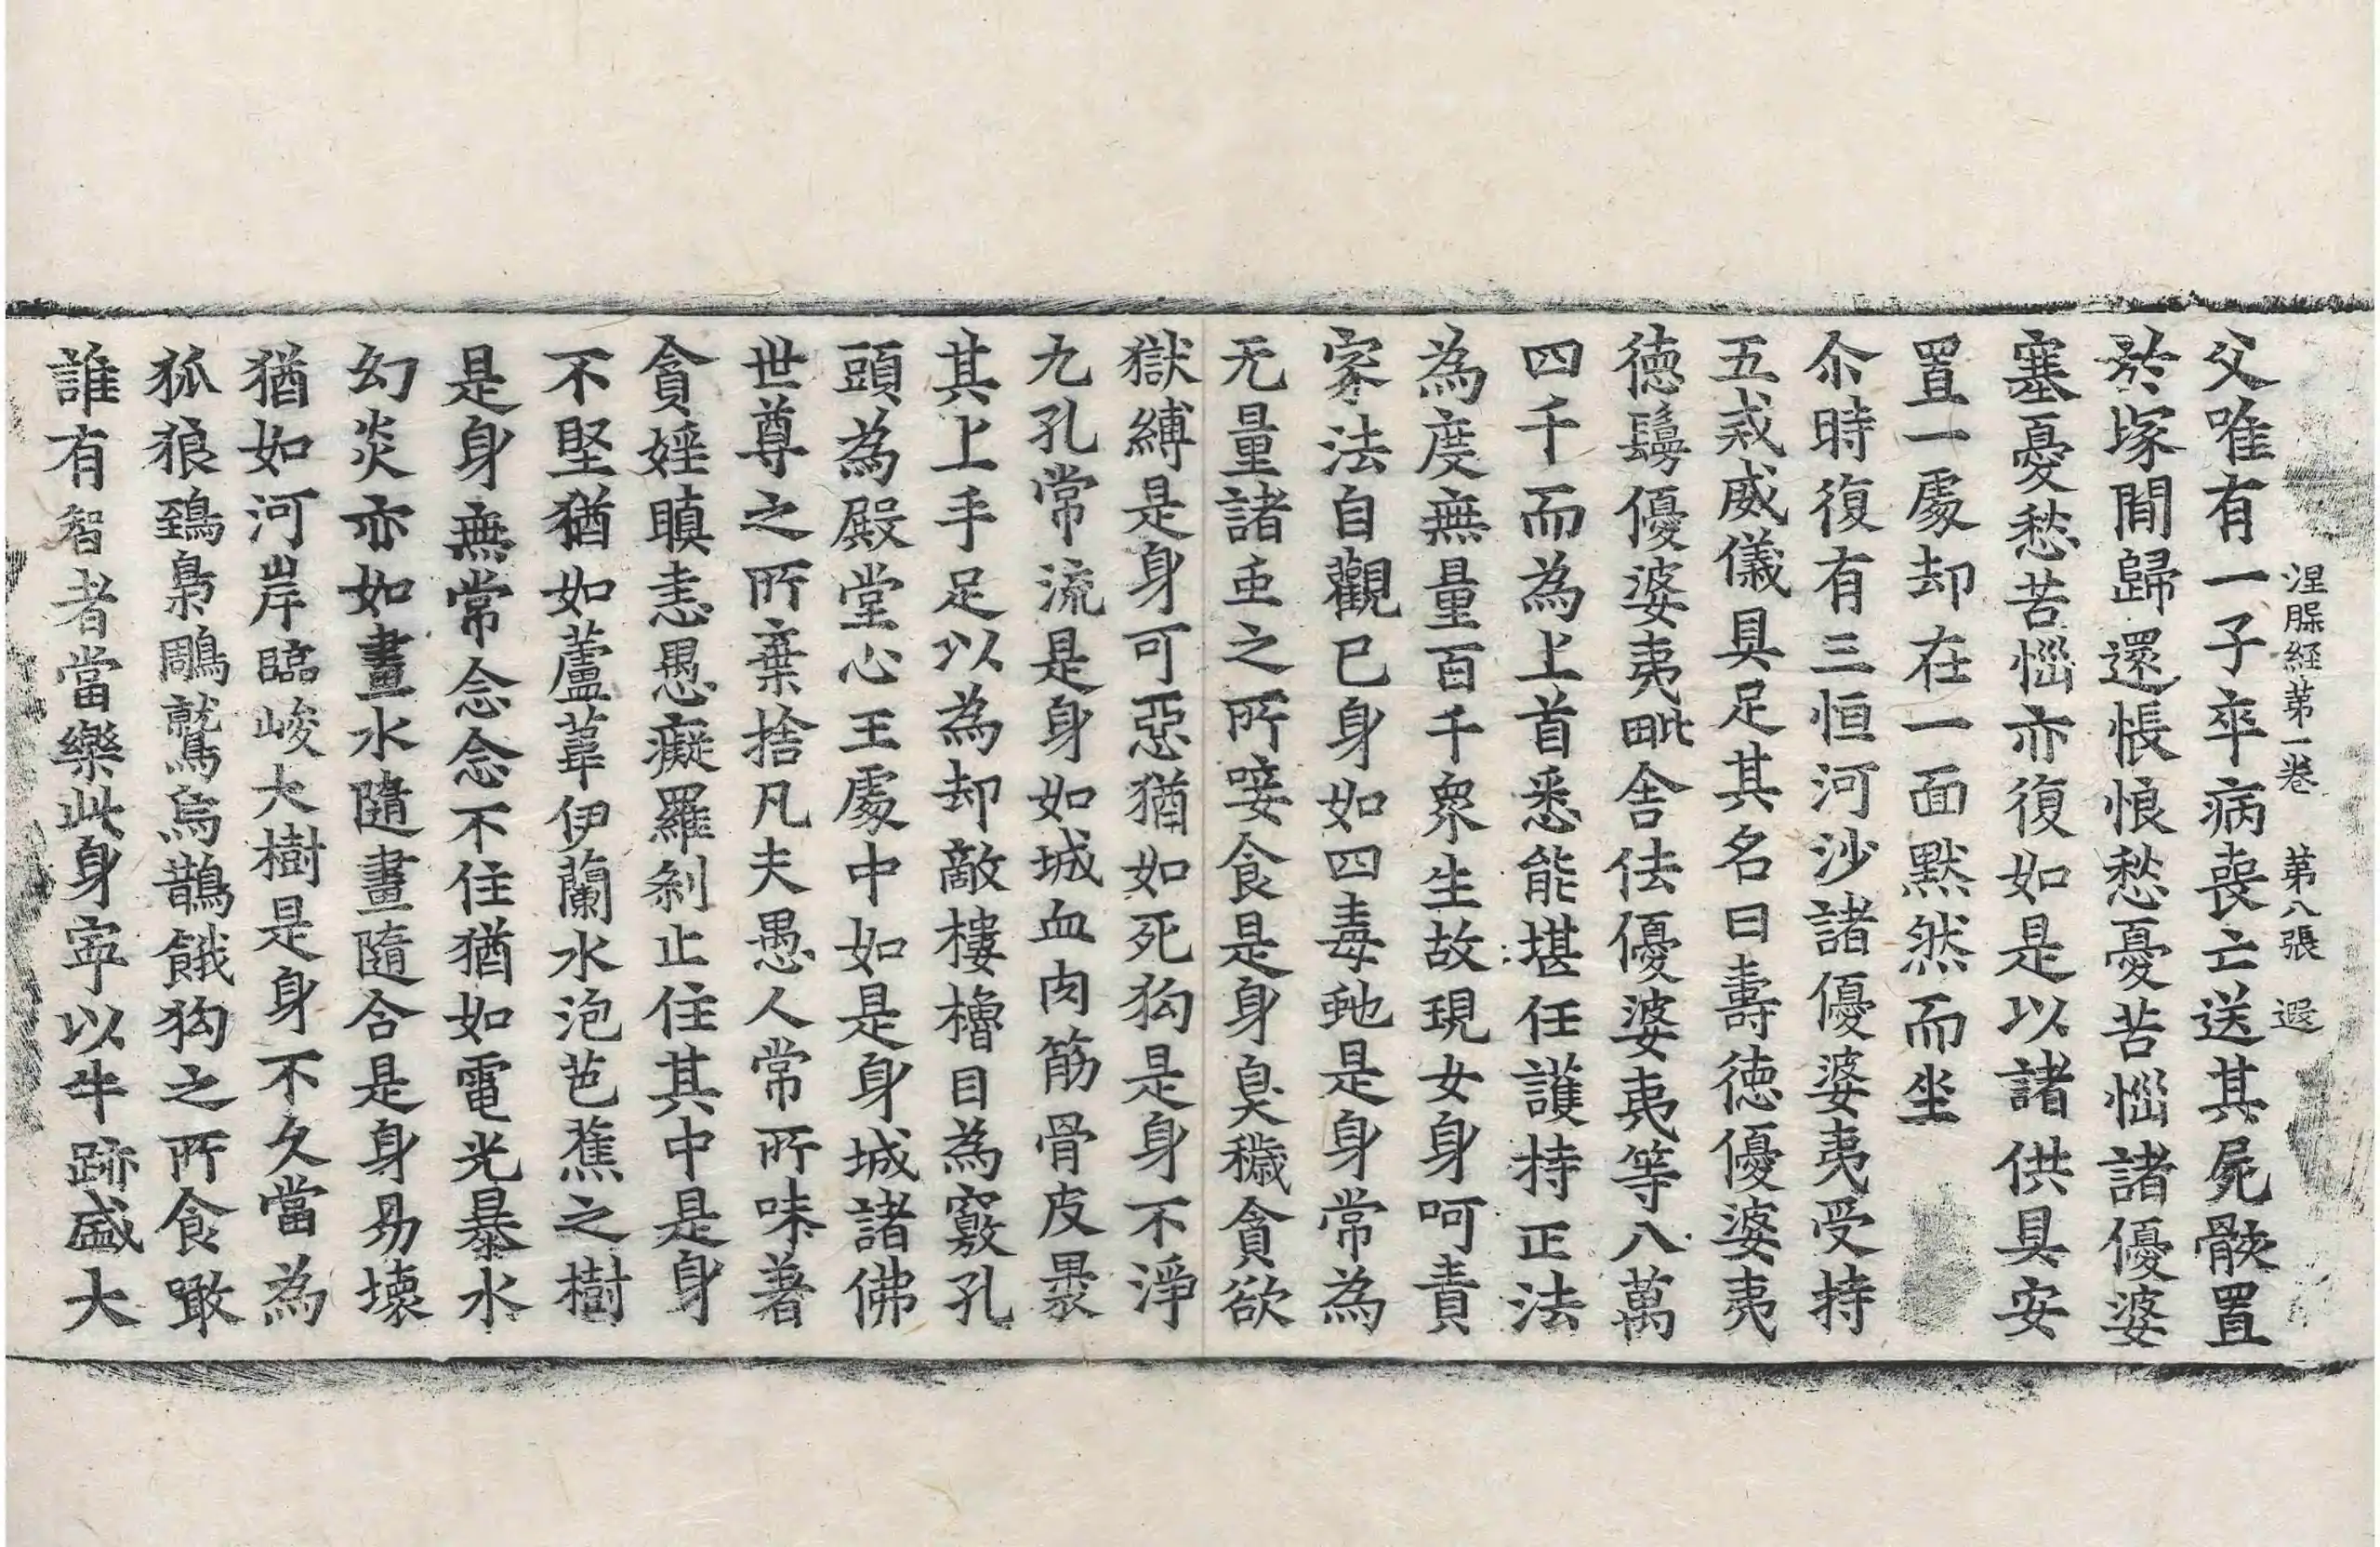 涅槃経苐一卷 苐八張 遐
父唯有一子卒病喪亡送其屍骸置
於塚閒歸還悵悢愁憂苦惱諸優婆
塞憂愁苦惱亦復如是以諸供具安
置一處却在一面默然而坐
尒時復有三恒河沙諸優婆夷受持
五戒威儀具足其名曰壽德優婆夷
德鬘優婆夷毗舍佉優婆夷等八萬
四千而為上首悉能堪任護持正法
為度無量百千衆生故現女身呵責
家法自觀已身如四毒虵是身常為
无量諸䖝之所唼食是身臭穢貪欲
獄縛是身可惡猶如死狗是身不淨
九孔常流是身如城血肉筋骨皮裹
其上手足以為却敵樓櫓目為竅孔
頭為殿堂心王處中如是身城諸佛
世尊之所棄捨凡夫愚人常所味著
貪婬瞋恚愚癡羅剎止住其中是身
不堅猶如蘆葦伊蘭水泡芭蕉之樹
是身無常念念不住猶如電光暴水
幻炎亦如畫水隨畫隨合是身易壞
猶如河岸臨峻大樹是身不久當為
狐狼鵄梟鵰鷲烏鵲餓狗之所食噉
誰有智者當樂此身寧以牛跡盛大